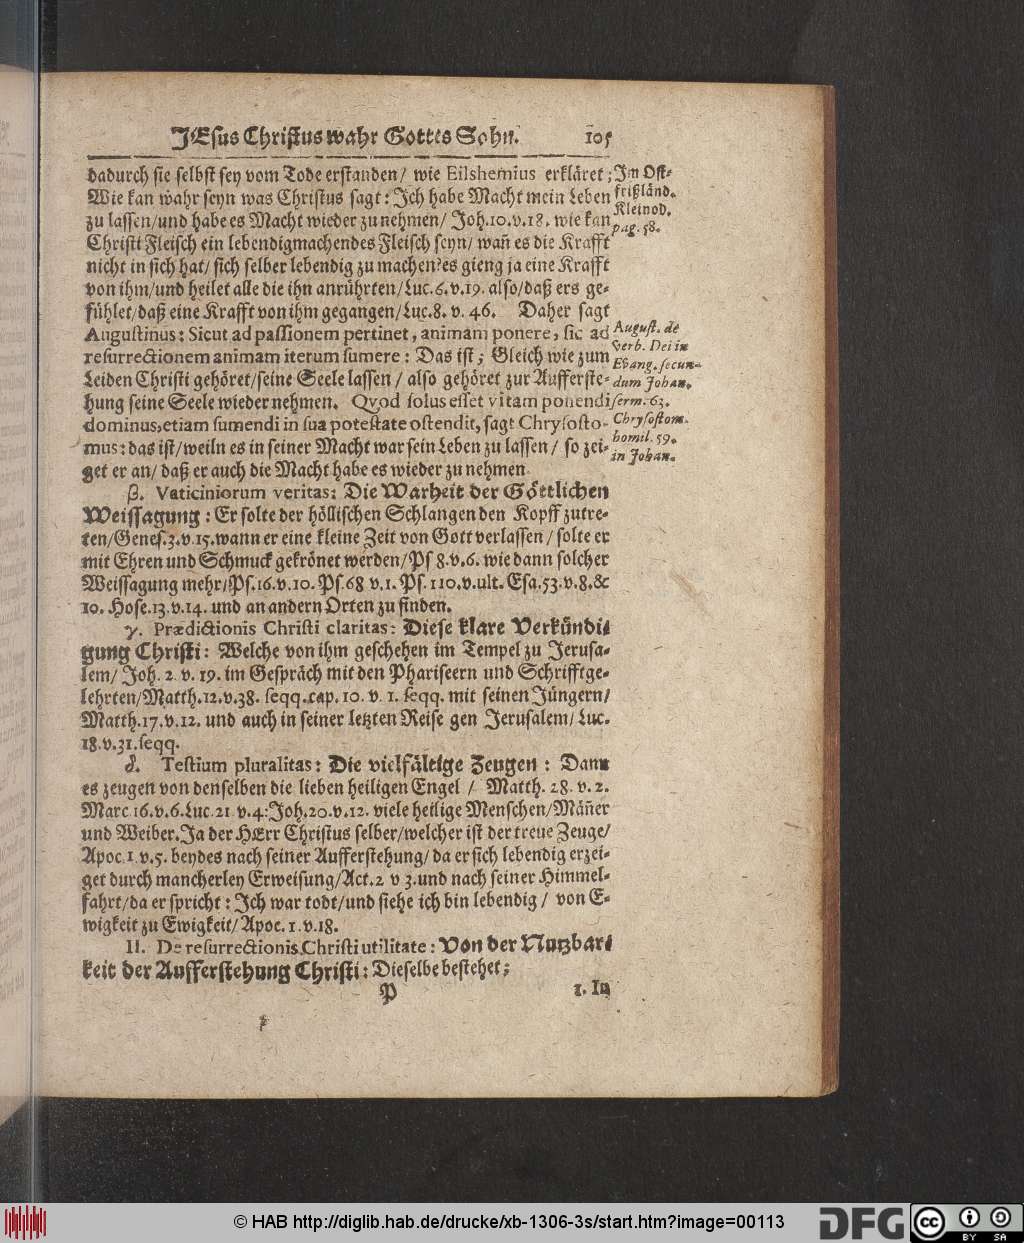 JEsus Christus wahr Gottes Sohn. 105
dadurch sie selbst sey vom Tode erstanden / wie Eilshemius erkläret;
Wie kan wahr seyn was Christus sagt: Ich habe Macht mein Leben
zu lassen/und habe es Macht wieder zu nehmen/ Joh.10.v.18. wie kan
Christi Fleisch ein lebendigmachendes Fleisch seyn/ wañ es die Krafft
nicht in sich hat/ sich selber lebendig zu machen? es gieng ja eine Krafft
von ihm/und heilet alle die ihn anrührten/Luc.6.v.19. also/daß ers ge-
fühlet/daß eine Krafft von ihm gegangen/Luc.8. v. 46. Daher sagt
Augustinus: Sicut ad passionem pertinet, animam ponere, sic ad
resurrectionem animam iterum sumere: Das ist; Gleich wie zum
Leiden Christi gehöret/seine Seele lassen / also gehöret zur Aufferste-
hung seine Seele wieder nehmen. Qvod solus esset vitam ponendi
dominus, etiam sumendi in sua potestate ostendit, sagt Chrysosto-
mus: das ist/weiln es in seiner Macht war sein Leben zu lassen / so zei-
get er an/ daß er auch die Macht habe es wieder zu nehmen.
Im Ost-
frißländ.
Kleinod.
pag. 58.
August. de
verb. Dei in
Evang. secun-
dum Johan.
serm. 63.
Chrysostom.
homil. 59.
in Johan.
β. Vaticiniorum veritas: Die Warheit der Göttlichen
Weissagung: Er solte der höllischen Schlangen den Kopff zutre-
ten/Genes.3.v.15. wann er eine kleine Zeit von Gott verlassen / solte er
mit Ehren und Schmuck gekrönet werden/Ps 8.v.6. wie dann solcher
Weissagung mehr/Ps.16.v.10. Ps.68 v.1. Ps.110.v.ult. Esa.53.v.8.&
10. Hose.13.v.14. und an andern Orten zu finden.
γ. Prædictionis Christi claritas: Diese klare Verkündi-
gung Christi: Welche von ihm geschehen im Tempel zu Jerusa-
lem/ Joh. 2. v. 19. im Gespräch mit den Phariseern und Schrifftge-
lehrten/Matth.12.v.38. seqq. cap. 10. v. 1. seqq. mit seinen Jüngern/
Matth.17.v.12. und auch in seiner letzten Reise gen Jerusalem/ Luc.
18.v.31.seqq.
δ. Testium pluralitas: Die vielfältige Zeugen: Dann
es zeugen von denselben die lieben heiligen Engel / Matth. 28. v. 2.
Marc 16.v.6.Luc.21 v.4: Joh.20.v.12. viele heilige Menschen/Mäñer
und Weiber. Ja der HErr Christus selber/welcher ist der treue Zeuge/
Apoc.1.v.5. beydes nach seiner Aufferstehung/ da er sich lebendig erzei-
get durch mancherley Erweisung/Act.2 v 3. und nach seiner Himmel-
fahrt/da er spricht: Ich war todt/und siehe ich bin lebendig / von E-
wigkeit zu Ewigkeit/ Apoc. 1.v.18.
II. De resurrectionis Christi utilitate: Von der Nutzbar-
keit der Aufferstehung Christi: Dieselbe bestehet;
P 1. In
© HAB http://diglib.hab.de/drucke/xb-1306-3s/start.htm?image=00113 DFG cc BY SA